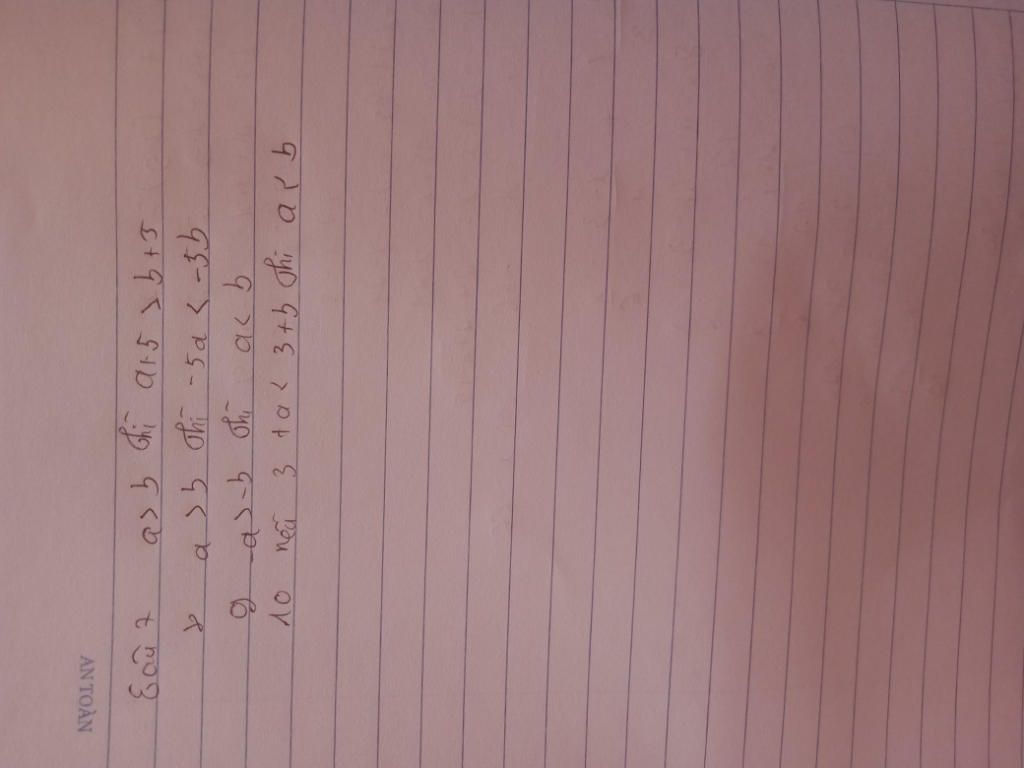 ANTOÀN
Câu 7 a > b thì a+5 > b+5
8 a > b thì -5a < -5b
9 -a > -b thì a < b
10 nếu 3 + a < 3+b thì a < b